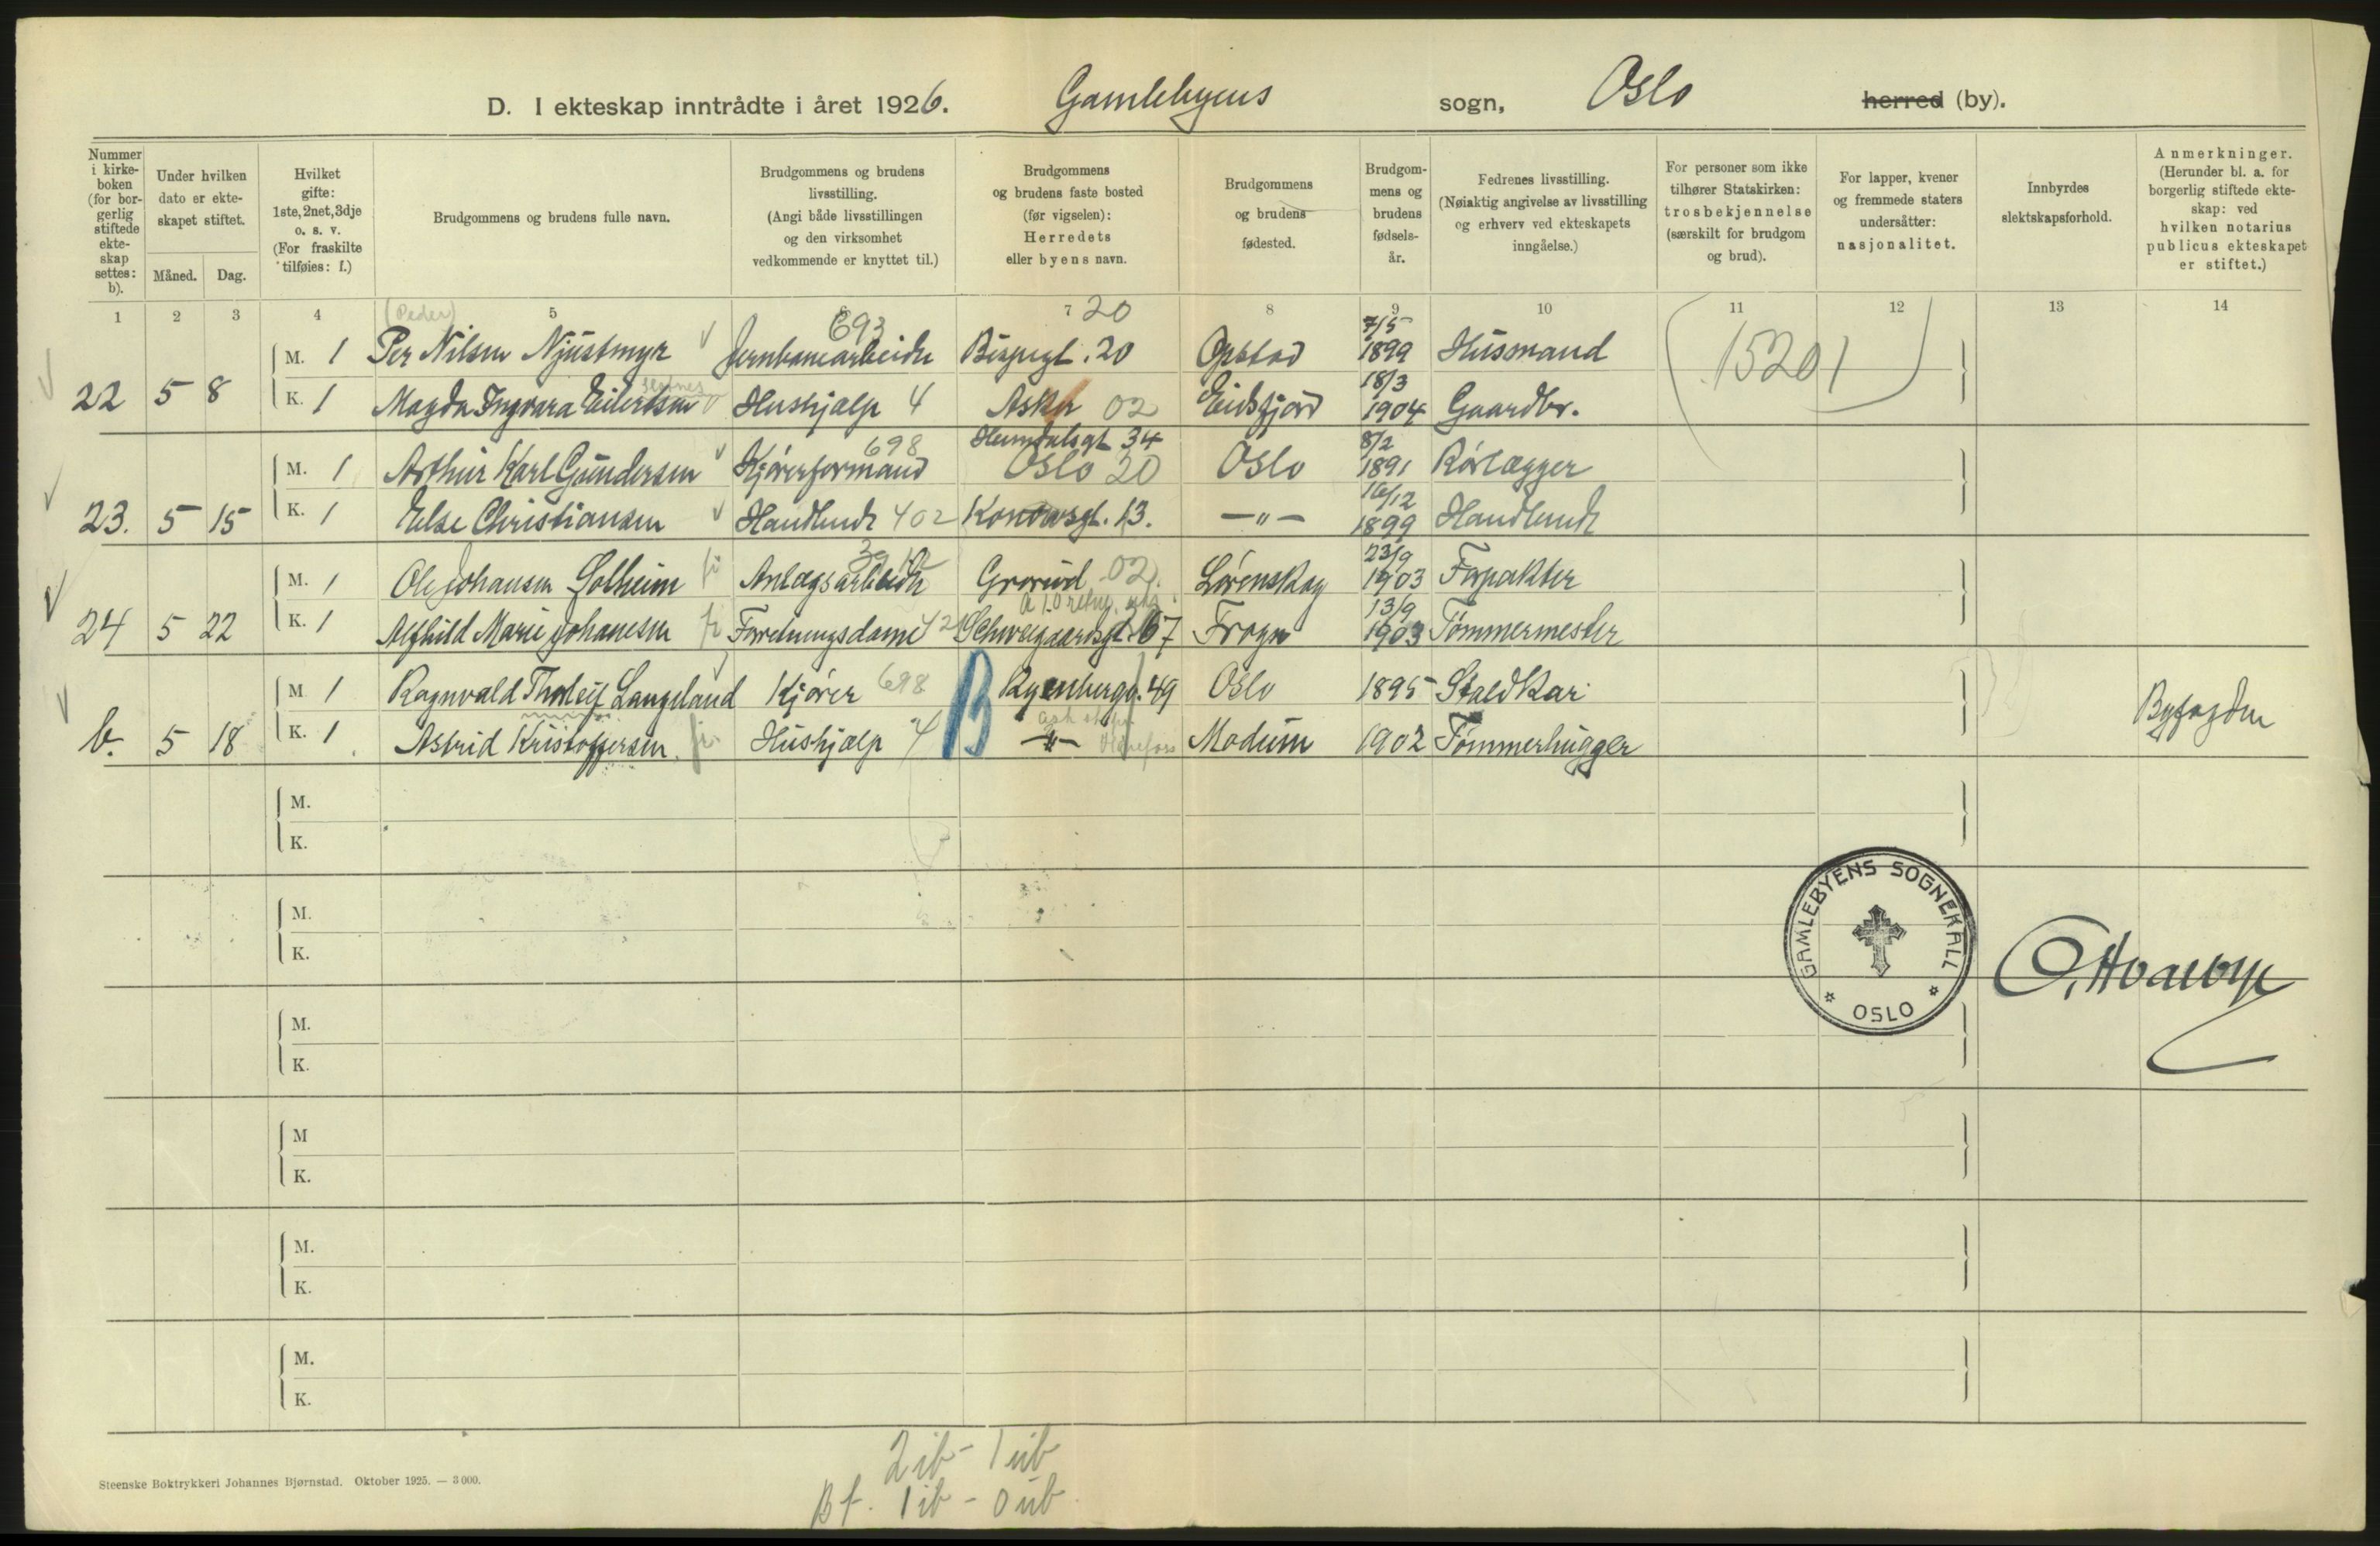 D. I ekteskap inntrådte i året 1926. Gamlebyens sogn, Oslo herred (by).
Nummer i kirke-boken (for bor-gerlig stiftede ekte-skap settes: b).
Under hvilken dato er ekte-skapet stiftet.
Måned. Dag.
Hvilket gifte: 1ste, 2net, 3dje o. s. v. (For fraskilte tilføies: f.)
Brudgommens og brudens fulle navn.
Brudgommens og brudens livsstilling. (Angi både livsstillingen og den virksomhet vedkommende er knyttet til.)
Brudgommens og brudens faste bosted (før vigselen): Herredets eller byens navn.
Brudgommens og brudens fødested.
Brudgom-mens og brudens fødsels-år.
Fedrenes livsstilling. (Nøiaktig angivelse av livsstilling og erhverv ved ekteskapets inngåelse.)
For personer som ikke tilhører Statskirken: trosbekjennelse (særskilt for brudgom og brud).
For lapper, kvener og fremmede staters undersåtter: nasjonalitet.
Innbyrdes slektskapsforhold.
Anmerkninger. (Herunder bl. a. for borgerlig stiftede ekte-skap: ved hvilken notarius publicus ekteskapet er stiftet.)
1 2 3 4 5 6 7 8 9 10 11 12 13 14
(Peder) 693 20 7/5
M. 1 Per Nilsen Njustmyr Jernbanearbeider Bispegt. 20 Opstad 1899 Husmand 15201
22 5 8 K. 1 Magda Ingvara Eilertsen Hushjælp 4 Asker 02 Eidsfjord 18/3 1904 Gaardbr.
698 34 8/2
M. 1 Arthur Karl Gundersen Kjørerformand Oslo 20 Oslo 1891 Rørlægger
23. 5 15 K. 1 Else Christiansen Handlende 402 Konowsgt. 13. —"— 16/12 1899 Handlende
M. 1 Ole Johansen Solheim Anlægsarbeider Grorud 02. Lørenskog 23/9 1903 Forpakter
24 5 22 K. 1 Alfhild Marie Johanesen Forretningsdame 42 Schweigaardsgt. 67 Frogn 13/9 1903 Tømmermester
M. 1 Ragnvald Thorleif Langeland Kjører 698 B Ryenbergg. 49 Oslo 1895 Staldkar
b. 5 18 K. 1 Astrid Kristoffersen Hushjælp 4 —"— Modum 1902 Tømmerhugger Byfogden
M.
K.
M.
K.
GAMLEBYENS SOGNEKALL
* OSLO *
M.
K.
M
K.
M.
K.
M.
K.
2 ib - 1 ub
Bf. 1 ib - 0 ub.
Steenske Boktrykkeri Johannes Bjørnstad. Oktober 1925. — 3 000.